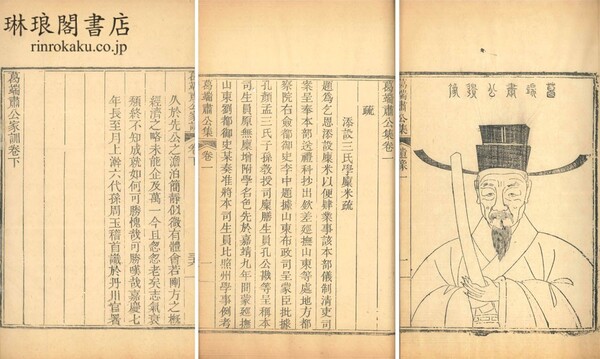 琳琅閣書店
rinrokaku.co.jp
葛端肅公遺像
葛端肅公集卷一
疏
添設三氏學廩米疏
題為乞恩添設廩米以便肄業事該本部儀制清吏司
案呈奉本部送禮科抄出欽差廵撫山東等處地方都
察院右僉都御史李中題據山東布政司呈蒙臣批據
孔顏孟三氏子孫教授司廩膳生員孔公勘等呈稱本
司生員原無廩增附學名色先於嘉靖九年間蒙經撫
山東劉都御史某奏准將本司生員比照州學事例考
葛端肅公集 卷一 一
久於先公之澹泊簡靜似微有體會若剛方之概
經濟之略未能企及萬一今且忽忽老矣志氣衰
頽終不知成就如何可勝愧哉可勝嘆哉嘉慶七
年長至月上澣六代孫周玉稽首識於丹川官署
葛端肅公家訓卷下